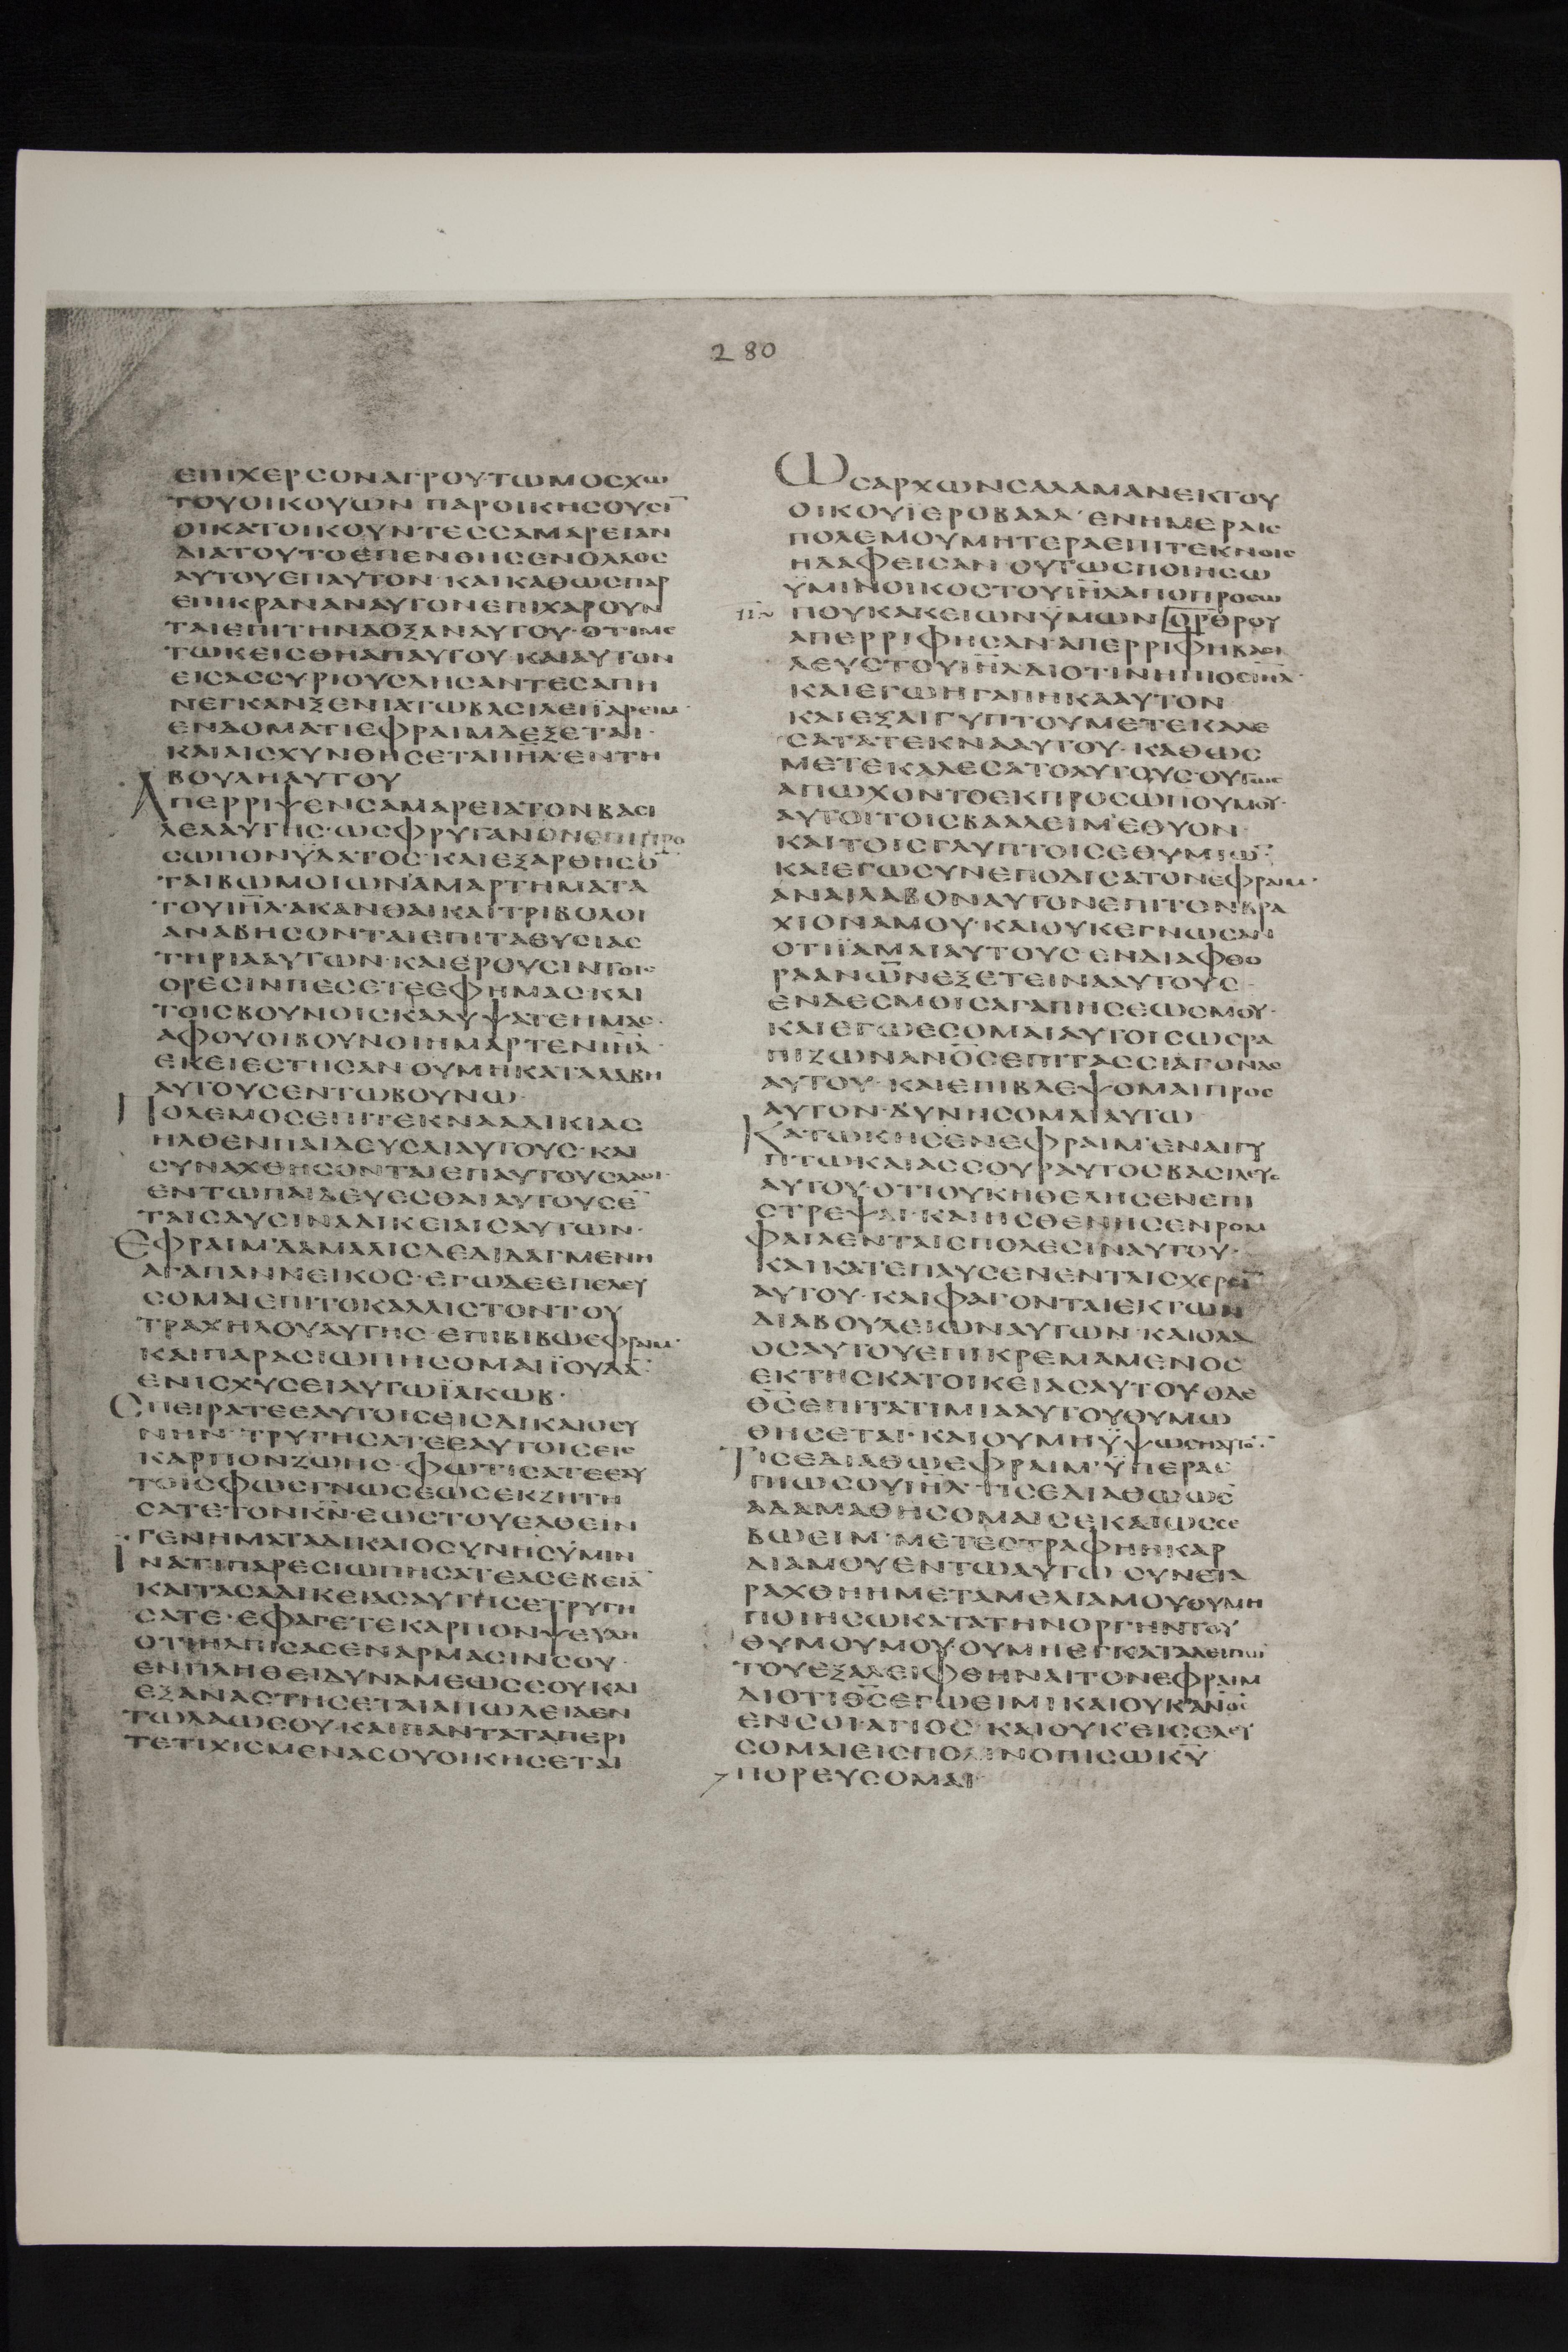 280
ΕΠΙΧΕΡСΟΝΑΓΡΟΥ·ΤΩΜΟСΧΩ
ΤΟΥΟΙΚΟΥΩΝ ΠΑΡΟΙΚΗСΟΥСΙ¯
ΟΙΚΑΤΟΙΚΟΥΝΤΕССΑΜΑΡΕΙΑΝ
ΔΙΑΤΟΥΤΟΕΠΕΝΘΗСΕΝΟΛΑΟС
ΑΥΤΟΥΕΠΑΥΤΟΝ·ΚΑΙΚΑΘΩСΠΑΡ
ΕΠΙΚΡΑΝΑΝΑΥΤΟΝΕΠΙΧΑΡΟΥΝ
ΤΑΙΕΠΙΤΗΝΔΟΞΑΝΑΥΤΟΥ·ΟΤΙΜΕ
ΤΩΚΕΙСΘΗΑΠΑΥΤΟΥ·ΚΑΙΑΥΤΟΝ
ΕΙСΑССΥΡΙΟΥСΔΗСΑΝΤΕСΑΠΗ
ΝΕΓΚΑΝΞΕΝΙΑΤΩΒΑСΙΛΕΙΪΑΡΕΙΜ·
ΕΝΔΟΜΑΤΙΕΦΡΑΙΜΔΕΞΕΤΑΙ·
ΚΑΙΑΙСΧΥΝΘΗСΕΤΑΙΙΗΛΕΝΤΗ
ΒΟΥΛΗΑΥΤΟΥ
ΑΠΕΡΡΙΨΕΝСΑΜΑΡΕΙΑΤΟΝΒΑСΙ
ΛΕΑΑΥΤΗС·ΩСΦΡΥΓΑΝΟΝΕΠΙΠΡΟ
СΩΠΟΝΫΔΑΤΟС·ΚΑΙΕΞΑΡΘΗСΟ¯
ΤΑΙΒΩΜΟΙΩΝΑΜΑΡΤΗΜΑΤΑ
ΤΟΥΙΗΛ·ΑΚΑΝΘΑΙΚΑΙΤΡΙΒΟΛΟΙ
ΑΝΑΒΗСΟΝΤΑΙΕΠΙΤΑΘΥСΙΑС
ΤΗΡΙΑΑΥΤΩΝ·ΚΑΙΕΡΟΥСΙΝΤΟΙС
ΟΡΕСΙΝΠΕСΕΤΕΕΦΗΜΑС·ΚΑΙ
ΤΟΙСΒΟΥΝΟΙСΚΑΛΥΨΑΤΕΗΜΑС·
ΑΦΟΥΟΙΒΟΥΝΟΙΗΜΑΡΤΕΝΙΗΛ·
ΕΚΕΙΕСΤΗСΑΝ·ΟΥΜΗΚΑΤΑΛΑΒΗ
ΑΥΤΟΥСΕΝΤΩΒΟΥΝΩ·
ΠΟΛΕΜΟСΕΠΙΤΕΚΝΑΑΔΙΚΙΑС
ΗΛΘΕΝΠΑΙΔΕΥСΑΙΑΥΤΟΥС·ΚΑΙ
СΥΝΑΧΘΗСΟΝΤΑΙΕΠΑΥΤΟΥСΛΑΟΙ·
ΕΝΤΩΠΑΙΔΕΥΕСΘΑΙΑΥΤΟΥСΕ¯
ΤΑΙСΔΥСΙΝΑΔΙΚΕΙΑΙСΑΥΤΩΝ·
ΕΦΡΑΙΜΔΑΜΑΛΙСΔΕΔΙΔΑΓΜΕΝΗ
ΑΓΑΠΑΝΝΕΙΚΟС·ΕΓΩΔΕΕΠΕΛΕΥ
СΟΜΑΙΕΠΙΤΟΚΑΛΛΙСΤΟΝΤΟΥ
ΤΡΑΧΗΛΟΥΑΥΤΗС·ΕΠΙΒΙΒΩΕΦΡΑΙΜ·
ΚΑΙΠΑΡΑСΙΩΠΗСΟΜΑΙΪΟΥΔΑ¯
ΕΝΙСΧΥСΕΙΑΥΤΩΪΑΚΩΒ·
СΠΕΙΡΑΤΕΕΑΥΤΟΙСΕΙСΔΙΚΑΙΟСΥ
ΝΗΝ·ΤΡΥΓΗСΑΤΕΕΑΥΤΟΙСΕΙС
ΚΑΡΠΟΝΖΩΗС·ΦΩΤΙСΑΤΕΕΑΥ
ΤΟΙСΦΩСΓΝΩСΕΩСΕΚΖΗΤΗ
СΑΤΕΤΟΝΚΝ·ΕΩСΤΟΥΕΛΘΕΙΝ
ΓΕΝΗΜΑΤΑΔΙΚΑΙΟСΥΝΗСΥΜΙΝ
ΙΝΑΤΙΠΑΡΕСΙΩΠΗСΑΤΕΑСΕΒΕΙΑ¯
ΚΑΙΤΑСΑΔΙΚΕΙΑСΑΥΤΗСΕΤΡΥΓΗ
СΑΤΕ·ΕΦΑΓΕΤΕΚΑΡΠΟΝΨΕΥΔΗ
ΟΤΙΗΛΠΙСΑСΕΝΑΡΜΑСΙΝСΟΥ·
ΕΝΠΛΗΘΕΙΔΥΝΑΜΕΩССΟΥΚΑΙ
ΕΞΑΝΑСΤΗСΕΤΑΙΑΠΩΛΕΙΑΕΝ
ΤΩΛΑΩСΟΥ·ΚΑΙΠΑΝΤΑΤΑΠΕΡΙ
ΤΕΤΙΧΙСΜΕΝΑСΟΥΟΙΧΗСΕΤΑΙ
ΩСΑΡΧΩΝСΑΛΑΜΑΝΕΚΤΟΥ
ΟΙΚΟΥΪΕΡΟΒΑΑΛ·ΕΝΗΜΕΡΑΙС
ΠΟΛΕΜΟΥΜΗΤΕΡΑΕΠΙΤΕΚΝΟΙС
ΗΔΑΦΕΙСΑΝ·ΟΥΤΩСΠΟΙΗСΩ
ΫΜΙΝΟΙΚΟСΤΟΥΙΗΛΑΠΟΠΡΟСΩ
ΠΟΥΚΑΚΕΙΩΝΫΜΩΝΟΡΘΡΟΥ
ΑΠΕΡΡΙΦΗСΑΝ·ΑΠΕΡΡΙΦΗΒΑСΙ
ΛΕΥСΤΟΥΙΗΛ·ΔΙΟΤΙΝΗΠΙΟСΙΗΛ·
ΚΑΙΕΓΩΗΓΑΠΗΚΑΑΥΤΟΝ
ΚΑΙΕΞΑΙΓΥΠΤΟΥΜΕΤΕΚΑΛΕ
СΑΤΑΤΕΚΝΑΑΥΤΟΥ·ΚΑΘΩС
ΜΕΤΕΚΑΛΕСΑΤΟΑΥΤΟΥС·ΟΥΤΩС
ΑΠΩΧΟΝΤΟΕΚΠΡΟСΩΠΟΥΜΟΥ·
ΑΥΤΟΙΤΟΙСΒΑΑΛΕΙΜΈΘΥΟΝ
ΚΑΙΤΟΙСΓΛΥΠΤΟΙСΕΘΥΜΙΩ¯
ΚΑΙΕΓΩСΥΝΕΠΟΔΙСΑΤΟΝΕΦΡΑΙΜ·
ΑΝΑΙΛΑΒΟΝΑΥΤΟΝΕΠΙΤΟΝΒΡΑ
ΧΙΟΝΑΜΟΥ·ΚΑΙΟΥΚΕΓΝΩСΑΝ
ΟΤΙΪΑΜΑΙΑΥΤΟΥС·ΕΝΔΙΑΦΘΟ
ΡΑΑΝΩΝΕΞΕΤΕΙΝΑΑΥΤΟΥС·
ΕΝΔΕСΜΟΙСΑΓΑΠΗСΕΩСΜΟΥ·
ΚΑΙΕΓΩΕСΟΜΑΙΑΥΤΟΙСΩСΡΑ
ΠΙΖΩΝΑΝΟСΕΠΙΤΑССΙΑΓΟΝΑС
ΑΥΤΟΥ·ΚΑΙΕΠΙΒΛΕΨΟΜΑΙΠΡΟС
ΑΥΤΟΝ·ΔΥΝΗСΟΜΑΙΑΥΤΩ
ΚΑΤΩΚΗСΕΝΕΦΡΑΙΜΈΝΑΙΓΥ
ΠΤΩΚΑΙΑССΟΥΡΑΥΤΟСΒΑСΙΛΕΥС
ΑΥΤΟΥ·ΟΤΙΟΥΚΗΘΕΛΗСΕΝΕΠΙ
СΤΡΕΨΑΙ·ΚΑΙΗСΘΕΝΗСΕΝΡΟΜ
ΦΑΙΑΕΝΤΑΙСΠΟΛΕСΙΝΑΥΤΟΥ·
ΚΑΙΚΑΤΕΠΑΥСΕΝΕΝΤΑΙСΧΕΡСΙ¯
ΑΥΤΟΥ·ΚΑΙΦΑΓΟΝΤΑΙΕΚΤΩΝ
ΔΙΑΒΟΥΛΕΙΩΝΑΥΤΩΝ·ΚΑΙΟΛΑ
ΟСΑΥΤΟΥΕΠΙΚΡΕΜΑΜΕΝΟС
ΕΚΤΗСΚΑΤΟΙΚΕΙΑСΑΥΤΟΥ·ΟΔΕ
ΘСΕΠΙΤΑΤΙΜΙΑΑΥΤΟΥΘΥΜΩ
ΘΗСΕΤΑΙ·ΚΑΙΟΥΜΗΫΨΩСΗΑΥΤΟ¯
ΤΙСΕΔΙΑΘΩΕΦΡΑΙΜ·ΫΠΕΡΑС
ΠΙΩСΟΥΙΗΛ·ΤΙСΕΔΙΑΘΩΩС
ΑΔΑΜΑΘΗСΟΜΑΙСΕΚΑΙΩССΕ
ΒΩΕΙΜ·ΜΕΤΕСΤΡΑΦΗΗΚΑΡ
ΔΙΑΜΟΥΕΝΤΩΑΥΤΩ·СΥΝΕΤΑ
ΡΑΧΘΗΗΜΕΤΑΜΕΛΙΑΜΟΥΟΥΜΗ
ΠΟΙΗСΩΚΑΤΑΤΗΝΟΡΓΗΝΤΟΥ
ΘΥΜΟΥΜΟΥ·ΟΥΜΗΕΓΚΑΤΑΛΕΙΠΩ
ΤΟΥΕΞΑΛΕΙΦΘΗΝΑΙΤΟΝΕΦΡΑΙΜ
ΔΙΟΤΙΘСΕΓΩΕΙΜΙΚΑΙΟΥΚΑΝΟС
ΕΝСΟΙΑΓΙΟС·ΚΑΙΟΥΚΕΙСΕΛΕΥ
СΟΜΑΙΕΙСΠΟΛΙΝΟΠΙСΩΚΥ
ΠΟΡΕΥСΟΜΑΙ